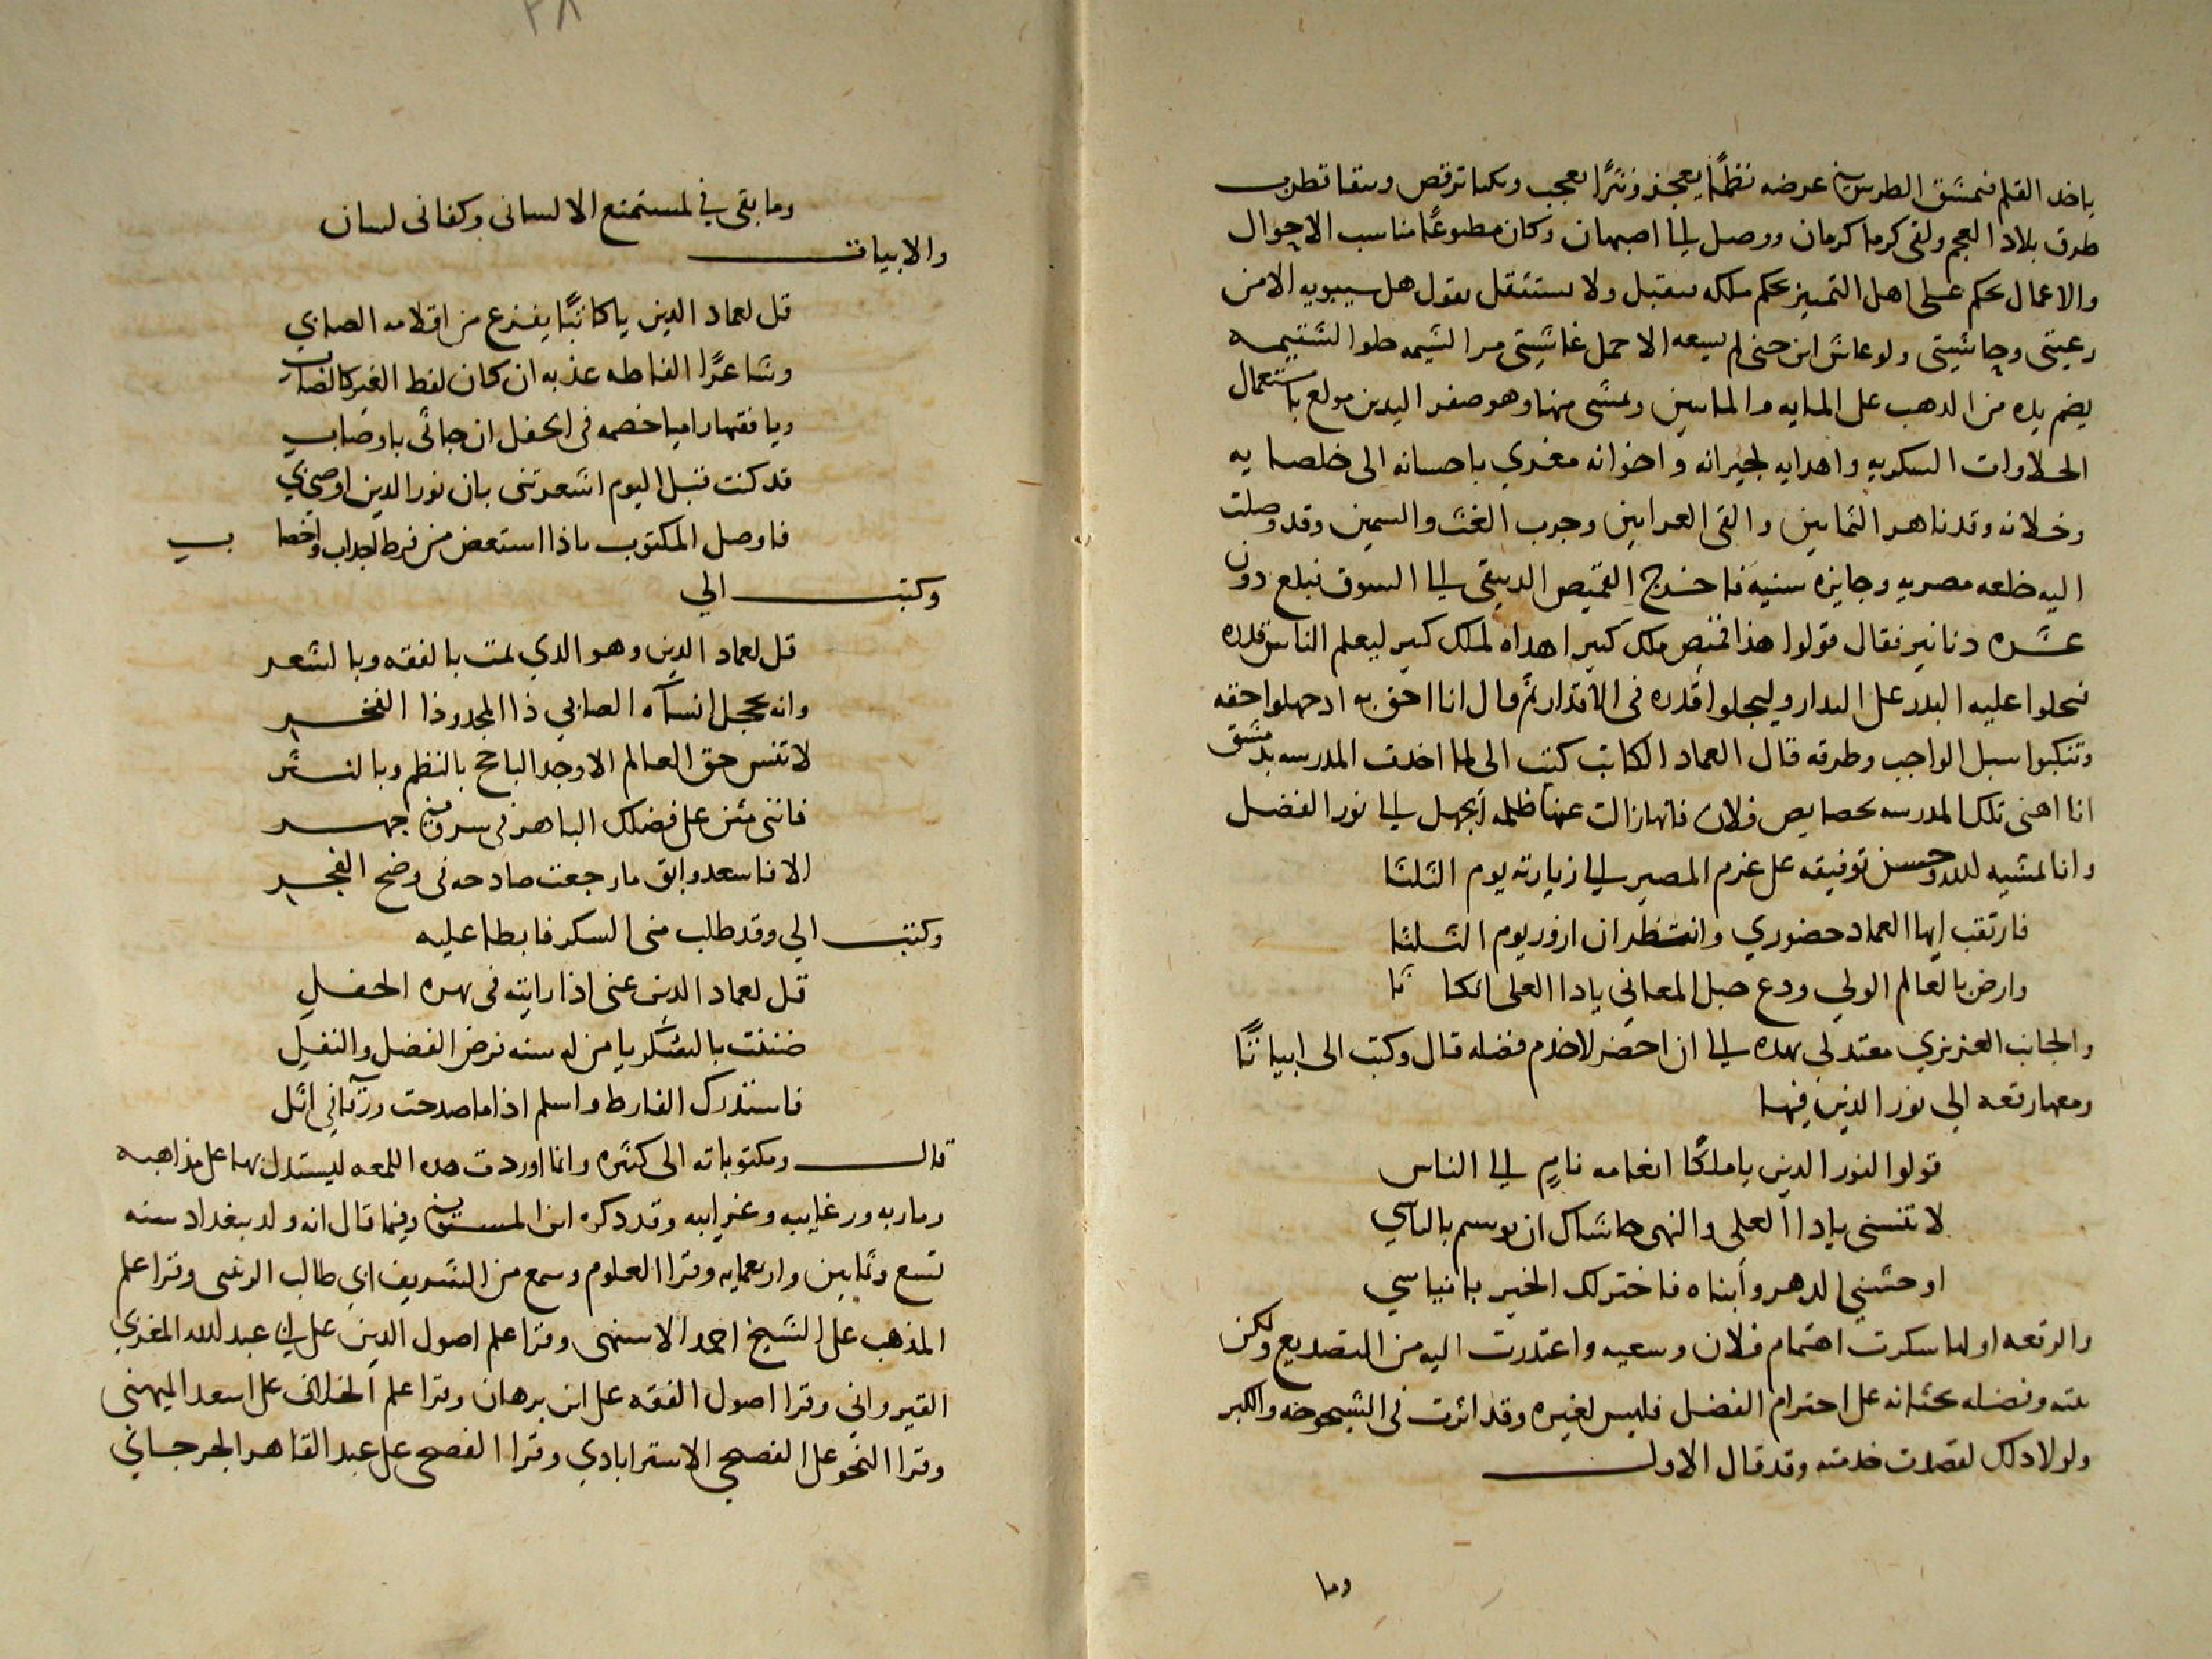 ياخد القلم فيمشق الطرس في عرضه نظمًا يعجز ونثرًا يعجب ونكتا ترقص ونتفا تطرب
طرق بلاد العجم ولقى كرما كرمان ووصل الى اصبهان وكان مطبوعًا مناسب الاحوال
والاعمال يحكم على اهل التمييز بحكم ملكه فيقبل ولا يستثقل يقول هل سيبويه الا من
رعيتي وحاشيتي ولو عاش ابن جنى لم يسعه الا حمل غاشيتي مر الشيمه حلو الشتيمه
يضم يده من الدهب على المايه والمايتين ويمشى منها وهو صفر اليدين مولع باستعمال
الحلاوات السكريه واهدايه لجيرانه واخوانه مغري باحسانه الى خلصايه
وخلانه وقد ناهز الثمانين والقى العرانين وجرب الغث والسمين وقد وصلت
اليه خلعه مصريه وجايزه سنيه فاخرج القميص الدبيقى الى السوق فبلغ دون
عشره دنانير فقال قولوا هذا قميص ملك كبير اهداه لملك كبير ليعلم الناس قدره
فيحلوا عليه البدر على البدار وليجلوا قدره في الاقدار ثم قال انا احق به اد جهلوا حقه
وتنكبوا سبل الواجب وطرقه قال العماد الكاتب كتب الى لما اخدت المدرسه بدمشق
انا اهنى تلك المدرسه بخصايص فلان فانها زالت عنها ظلمه الجهل الى نور الفضل
وانا لمشيه الله وحسن توفيقه على عزم المصير الى زيارته يوم الثلثا
فارتقب ايها العماد حضوري وانتظر ان ازور يوم الثلثا
وارض بالعالم الولي ودع حبل المعاني يادا العلى انكاثا
والجانب العزيزي معتد لي بهده الى ان احضر لاخدم فضله قال وكتب الى ابياتًا
ومعها رقعه الى نور الدين فيها
قولوا لنور الدين ياملكًا انعامه نامٍ الى الناس
لا تنسنى يادا العلى والنهى حاشاك ان توسم بالناسي
اوحشني الدهر وأبناه فاختر لك الخير بايناسي
والرقعه اولها سكرت اهتمام فلان وسعيه واعتدرت اليه من التصديع ولكن
بيته وفضله يحثانه على احترام الفضل فليس لغيره وقد اثرت في الشيخوخه والكبر
ولولا دلك لقصدت خدمته وقد قال الاول
وما
٣٨
وما بقى في لمستمتع الا لسانى وكفانى لسان
والابيات
قل لعماد الدين ياكاتبًا يفزع من اقلامه الصابي
وشاعرًا الفاظه عذبه ان كان لفظ الغير كالصاب
ويا فقيها راميا خصمه في الحفل ان جاثى باوصاب
قد كنت قبل اليوم اشعرتنى بان نور الدين اوصى بي
فاوصل المكتوب ماذا استعض من فرط اجداب واخصاب
وكتب الي
قل لعماد الدين وهو الدي يمت بالفقه وبالشعر
وانه يخجل انساه الصابي ذا المجد وذا الفخر
لا تنس حق العالم الاوحد الباجح بالنظم وبالنثر
فاننى مثن على فضلك الباهر في سر وفي جهر
الا فاسعد وابق ما رجعت صادحه في وضح الفجر
وكتب الي وقد طلب منى السكر فابطا عليه
قل لعماد الدين عنى اذا رايته في بهره الحفل
ضننت بالسكر يا من له سنه فرض الفضل والنفل
فاستدرك الفارط واسلم اذا ما صدحت ورقا في اثل
قال ومكتوباته الى كثيره وانما اوردت هده اللمعه ليستدل بها على مذاهبه
وماربه ورغايبه وغرايبه وقد دكره ابن المستوفي وفيما قال انه ولد ببغداد سنه
تسع وثمانين واربعمايه وقرا العلوم وسمع من الشريف ابي طالب الزينبى وقرا علم
المذهب على الشيخ احمد الاسنهى وقرا علم اصول الدين على ابي عبد الله المغربي
القيرواني وقرا اصول الفقه على ابن برهان وقرا علم الخلاف على اسعد الميهنى
وقرا النحو على الفصيحي الاسترابادي وقرا الفصيحى على عبد القاهر الجرجاني